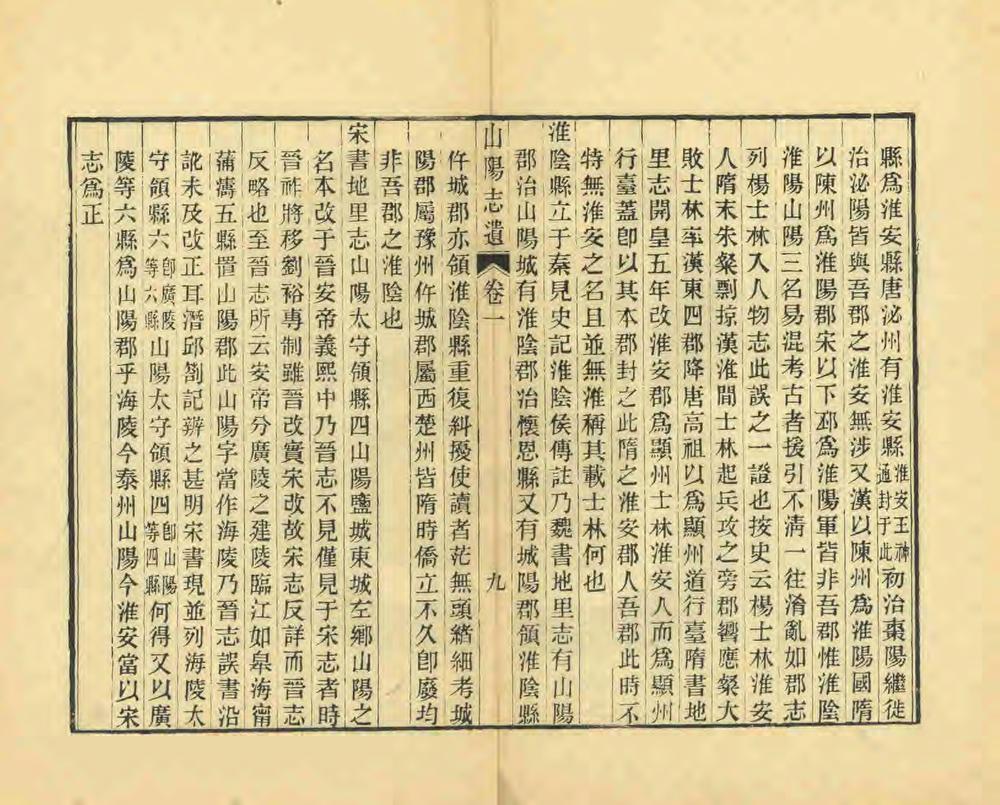 縣爲淮安縣唐泌州有淮安縣淮安王神通封于此初治棗陽繼徙
治泌陽皆與吾郡之淮安無涉又漢以陳州爲淮陽國隋
以陳州爲淮陽郡宋以下邳爲淮陽軍皆非吾郡惟淮陰
淮陽山陽三名易混考古者援引不淸一往淆亂如郡志
列楊士林入人物志此誤之一證也按史云楊士林淮安
人隋末朱粲剽掠漢淮間士林起兵攻之旁郡響應粲大
敗士林率漢東四郡降唐高祖以爲顯州道行臺隋書地
里志開皇五年改淮安郡爲顯州士林淮安人而爲顯州
行臺蓋卽以其本郡封之此隋之淮安郡人吾郡此時不
特無淮安之名且並無淮稱其載士林何也
淮陰縣立于秦見史記淮陰侯傳註乃魏書地里志有山陽
郡治山陽城有淮陰郡治懷恩縣又有城陽郡領淮陰縣
山陽志遺 卷一 九
仵城郡亦領淮陰縣重復糾擾使讀者茫無頭緒細考城
陽郡屬豫州仵城郡屬西楚州皆隋時僑立不久卽廢均
非吾郡之淮陰也
宋書地里志山陽太守領縣四山陽鹽城東城左鄉山陽之
名本改于晉安帝義熙中乃晉志不見僅見于宋志者時
晉祚將移劉裕專制雖晉改實宋改故宋志反詳而晉志
反略也至晉志所云安帝分廣陵之建陵臨江如臯海甯
蒲濤五縣置山陽郡此山陽字當作海陵乃晉志誤書沿
訛未及改正耳潛邱劄記辨之甚明宋書現並列海陵太
守領縣六卽廣陵等六縣山陽太守領縣四卽山陽等四縣何得又以廣
陵等六縣爲山陽郡乎海陵今泰州山陽今淮安當以宋
志爲正